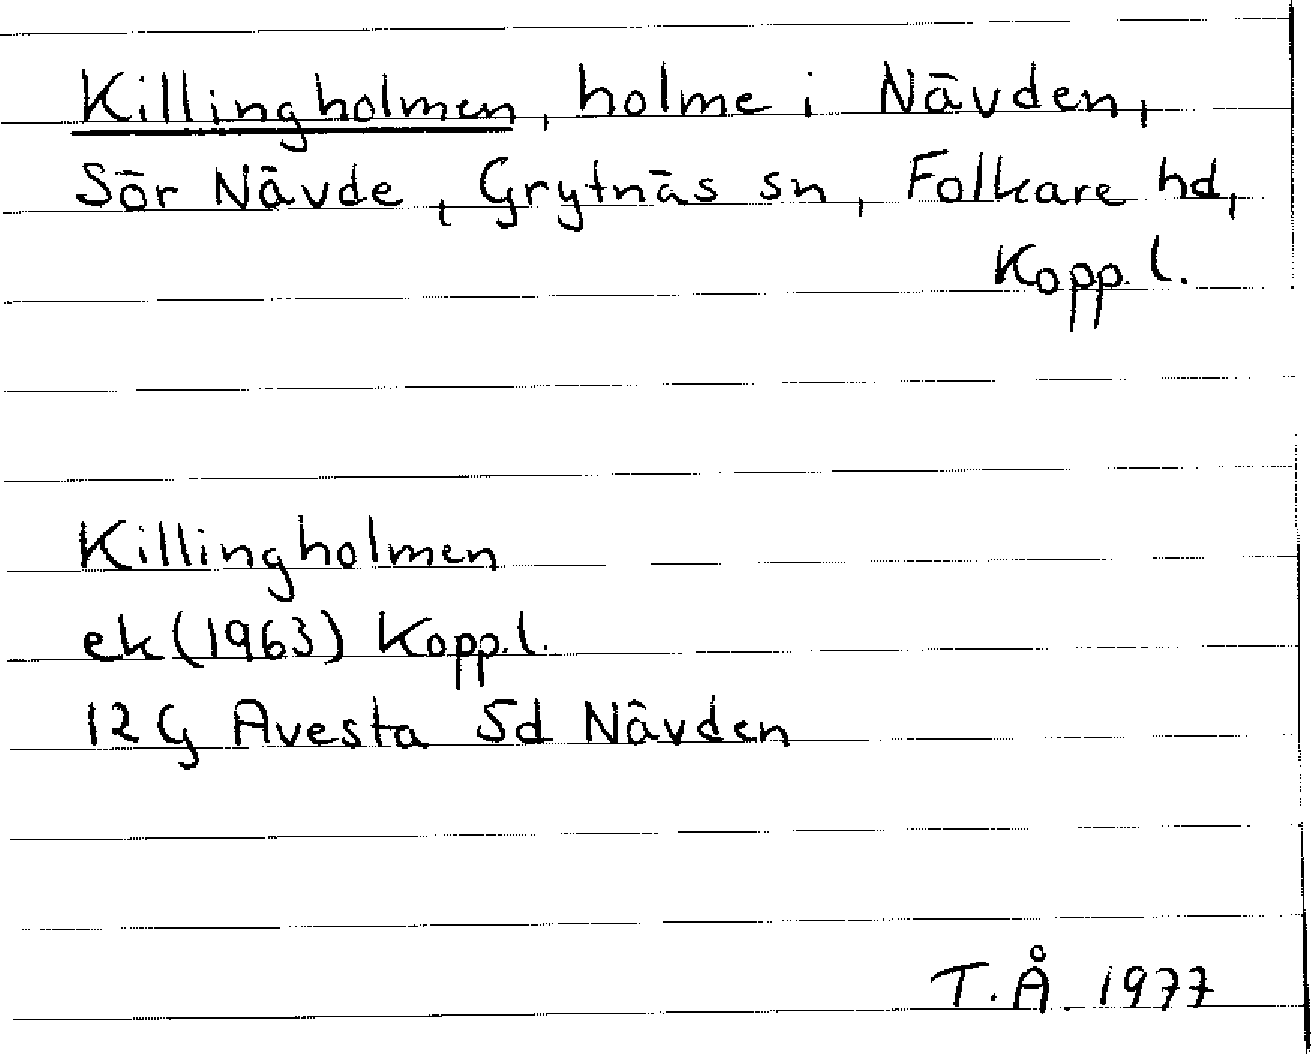 Killingholmen, holme i Nävden,
Sör Nävde, Grytnäs sn, Folkare hd,
Kopp.l.
Killingholmen
ek (1963) Kopp.l.
12 G Avesta Sd Nävden
T.Å. 1977